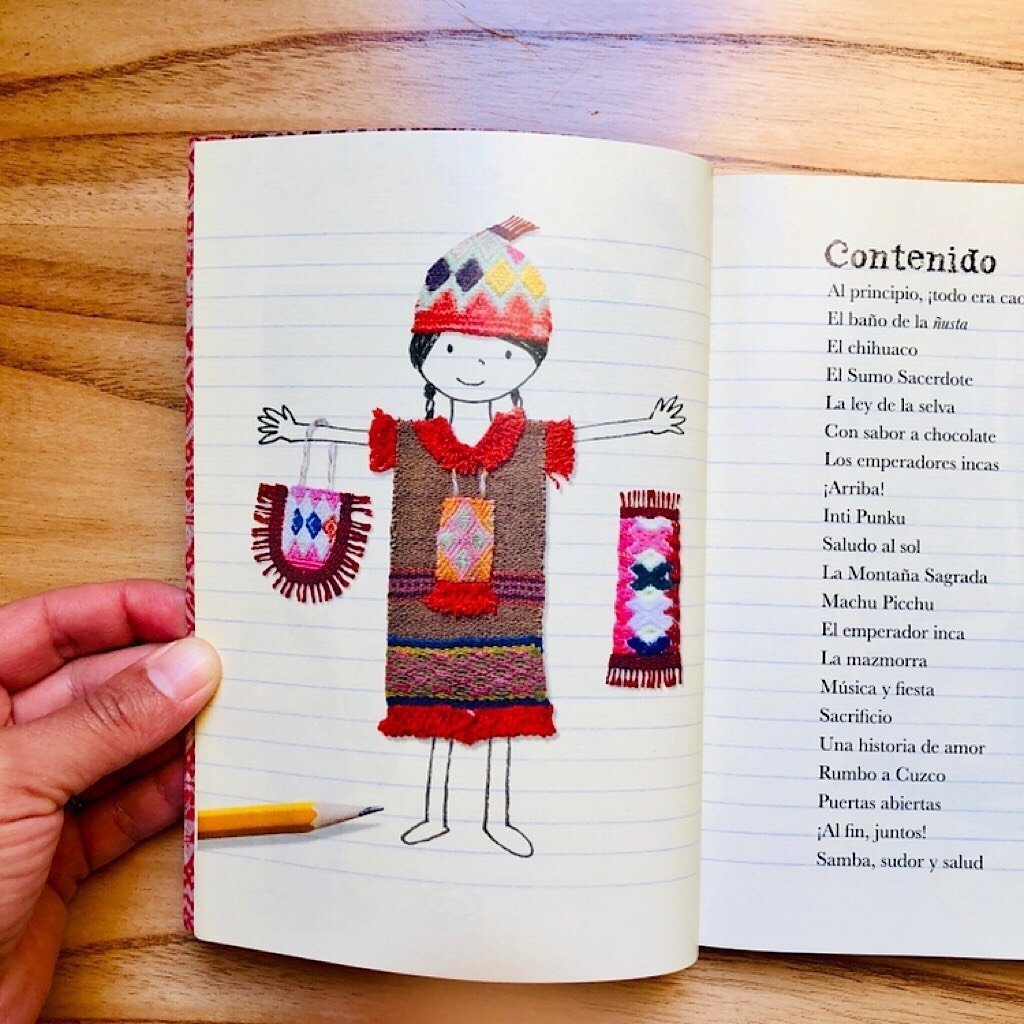 Contenido
Al principio, ¡todo era
El baño de la ñusta
El chihuaco
El Sumo Sacerdote
La ley de la selva
Con sabor a chocolate
Los emperadores incas
¡Arriba!
Inti Punku
Saludo al sol
La Montaña Sagrada
Machu Picchu
El emperador inca
La mazmorra
Música y fiesta
Sacrificio
Una historia de amor
Rumbo a Cuzco
Puertas abiertas
¡Al fin, juntos!
Samba, sudor y salud